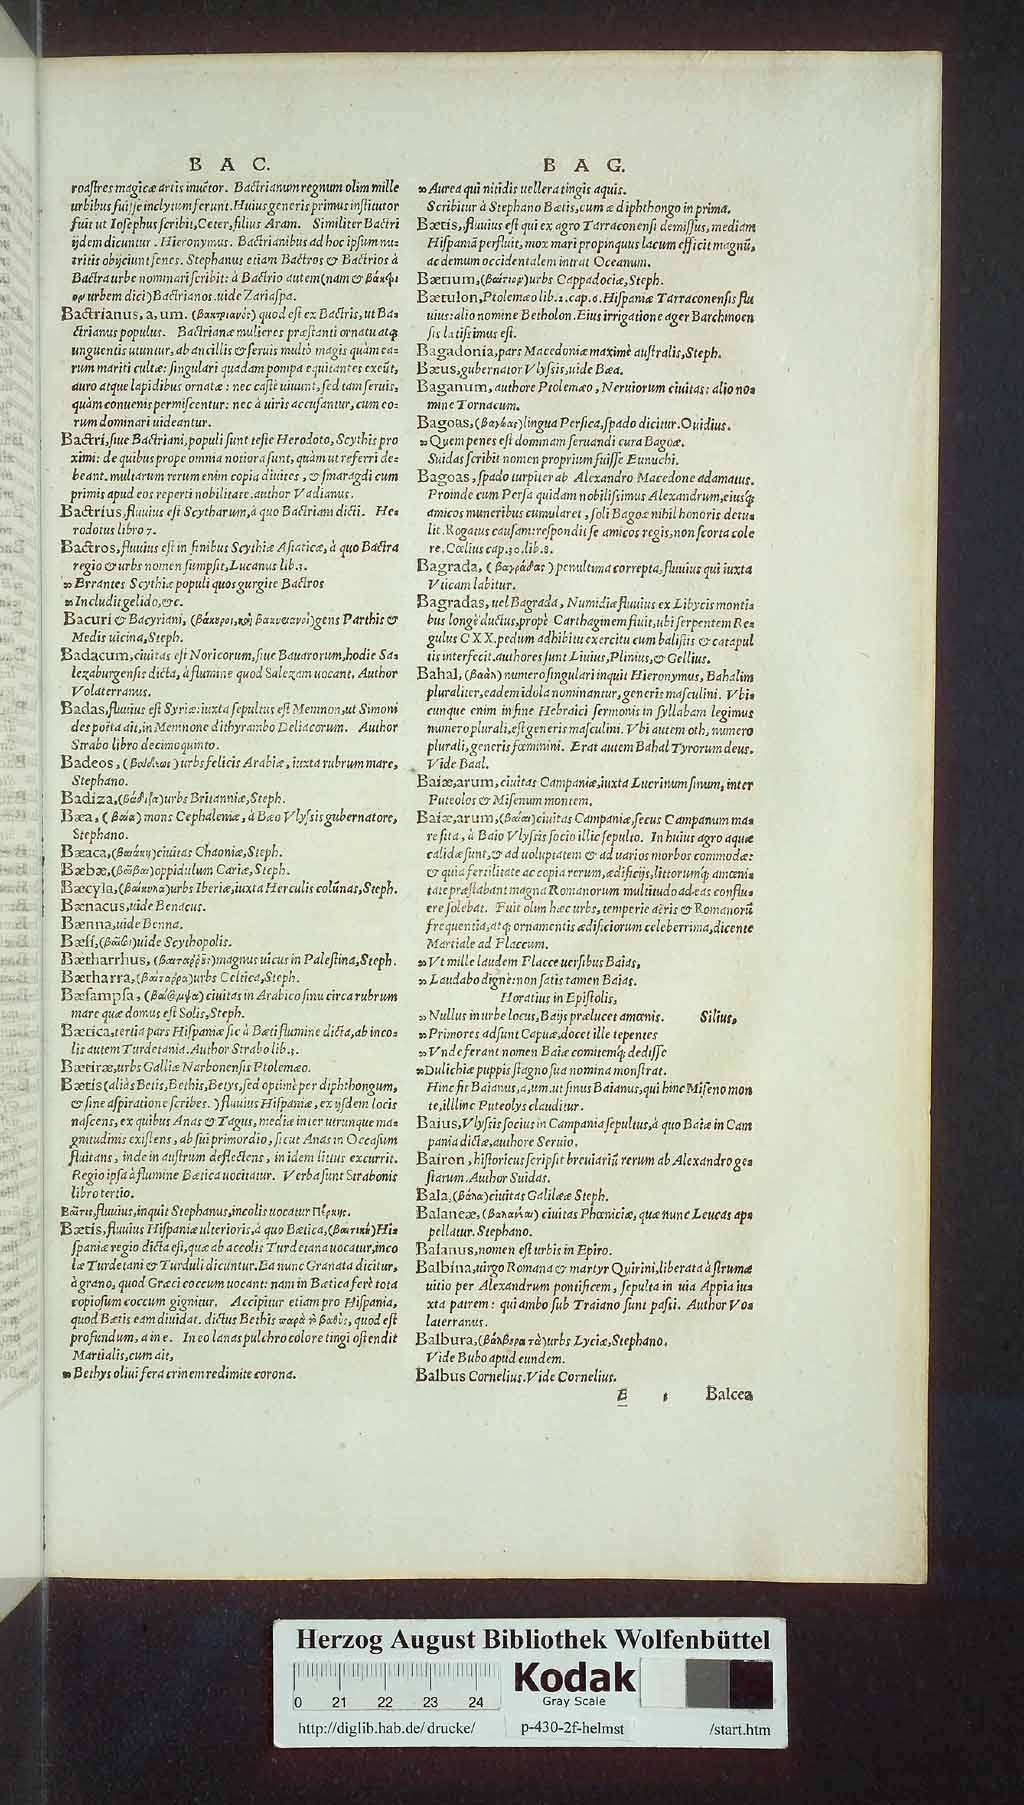 B A C.
roastres magicæ artis inuẽtor. Bactrianum regnum olim mille
urbibus fuisse inclytum ferunt. Huius generis primus institutor
fuit ut Iosephus scribit, Ceter, filius Aram. Similiter Bactri
ijdem dicuntur. Hieronymus. Bactrianibus ad hoc ipsum nu-
tritis obijciunt senes. Stephanus etiam Bactros & Bactrios à
Bactra urbe nominari scribit: à Bactrio autem (nam & βάκτρι
ον urbem dici) Bactrianos. uide Zariaspa.
Bactrianus, a, um. (βακτριανὸς) quod est ex Bactris, ut Ba-
ctrianus populus. Bactrianæ mulieres præstanti ornatu atq;
unguentis utuntur, ab ancillis & seruis multò magis quàm ea-
rum mariti cultæ: singulari quadam pompa equitantes exeũt,
auro atque lapidibus ornatæ: nec castè uiuunt, sed tam seruis,
quàm conuenis permiscentur: nec à uiris accusantur, cum eo-
rum dominari uideantur.
Bactri, siue Bactriani, populi sunt teste Herodoto, Scythis pro
ximi: de quibus prope omnia notiora sunt, quàm ut referri de-
beant. multarum rerum enim copia diuites, & smaragdi cum
primis apud eos reperti nobilitate. author Vadianus.
Bactrius, fluuius est Scytharum, à quo Bactriani dicti. He-
rodotus libro 7.
Bactros, fluuius est in finibus Scythiæ Asiaticæ, à quo Bactra
regio & urbs nomen sumpsit, Lucanus lib. 3.
» Errantes Scythiæ populi quos gurgite Bactros
» Includit gelido, &c.
Bacuri & Bacyriani, (βάκυροι, καὶ βακυριανοὶ) gens Parthis &
Medis uicina, Steph.
Badacum, ciuitas est Noricorum, siue Bauarorum, hodie Sa-
lezaburgensis dicta, à flumine quod Salezam uocant, Author
Volaterranus.
Badas, fluuius est Syriæ: iuxta sepultus est Memnon, ut Simoni
des poëta ait, in Memnone dithyrambo Deliacorum. Author
Strabo libro decimoquinto.
Badeos, (βαδέως) urbs felicis Arabiæ, iuxta rubrum mare,
Stephano.
Badiza, (βάδιζα) urbs Britanniæ, Steph.
Bæa, (βαία) mons Cephaleniæ, à Bæo Vlyssis gubernatore,
Stephano.
Bæaca, (βαιάκη) ciuitas Chaoniæ, Steph.
Bæbæ, (βαῖβαι) oppidulum Cariæ, Steph.
Bæcyla, (βαίκυλα) urbs Iberiæ, iuxta Herculis colũnas, Steph.
Bænacus, uide Benacus.
Bænna, uide Benna.
Bæsi, uide Scythopolis.
Bætharrhus, magnus uicus in Palestina, Steph.
Bætharra, (βαίταρρα) urbs Celtica, Steph.
Bæsampsa, (βαισάμψα) ciuitas in Arabico sinu circa rubrum
mare quæ domus est Solis, Steph.
Bætica, tertia pars Hispaniæ sic à Bæti flumine dicta, ab inco-
lis autem Turdetania. Author Strabo lib. 3.
Bætiræ, urbs Galliæ Narbonensis Ptolemæo.
Bætis (aliàs Betis, Bethis, Betys, sed optimè per diphthongum,
& sine aspiratione scribes.) fluuius Hispaniæ, ex ijsdem locis
nascens, ex quibus Anas & Tagus, mediæ inter utrunque ma-
gnitudinis existens, ab sui primordio, sicut Anas in Occasum
fluitans, inde in austrum deflectens, in idem littus excurrit.
Regio ipsa à flumine Bætica uocitatur. Verba sunt Strabonis
libro tertio.
Βαῖτις, fluuius, inquit Stephanus, incolis uocatur Πέρκης.
Bætis, fluuius Hispaniæ ulterioris, à quo Bætica, (βαιτικὴ) His-
paniæ regio dicta est, quæ ab accolis Turdetana uocatur, inco
læ Turdetani & Turduli dicuntur. Ea nunc Granata dicitur,
à grano, quod Græci coccum uocant: nam in Bætica ferè tota
copiosum coccum gignitur. Accipitur etiam pro Hispania,
quod Bætis eam diuidat. dictus Bethis παρὰ τὸ βαθὺς, quod est
profundum, a in e. In eo lanas pulchro colore tingi ostendit
Martialis, cum ait,
» Bethys oliui fera crinem redimite corona.
B A G.
» Aurea qui nitidis uellera tingis aquis.
Scribitur à Stephano Bætis, cum æ diphthongo in prima.
Bætis, fluuius est qui ex agro Tarraconensi demissus, mediam
Hispaniã perfluit, mox mari propinquus lacum efficit magnũ,
ac demum occidentalem intrat Oceanum.
Bætium, (βαίτιον) urbs Cappadociæ, Steph.
Bætulon, Ptolemæo lib. 2. cap. 6. Hispaniæ Tarraconensis flu
uius: alio nomine Betholon. Eius irrigatione ager Barchinoen
sis latissimus est.
Bagadonia, pars Macedoniæ maximè australis, Steph.
Bæus, gubernator Vlyssis, uide Bæa.
Baganum, authore Ptolemæo, Neruiorum ciuitas: alio no-
mine Tornacum.
Bagoas, (βαγώας) lingua Persica, spado dicitur. Ouidius.
» Quem penes est dominam seruandi cura Bagoæ.
Suidas scribit nomen proprium fuisse Eunuchi.
Bagoas, spado turpiter ab Alexandro Macedone adamatus.
Proinde cum Persa quidam nobilissimus Alexandrum, eiusq́;
amicos muneribus cumularet, soli Bagoæ nihil honoris detu-
lit. Rogatus causam: respondit se amicos regis, non scorta cole
re. Cœlius cap. 30. lib. 8.
Bagrada, (βαγράδας) penultima correpta, fluuius qui iuxta
Vticam labitur.
Bagradas, uel Bagrada, Numidiæ fluuius ex Libycis monti-
bus longè ductus, propè Carthaginem fluit, ubi serpentem Re-
gulus CXX. pedum adhibitu exercitu cum balistis & catapul
tis interfecit. authores sunt Liuius, Plinius, & Gellius.
Bahal, (βαὰλ) numero singulari inquit Hieronymus, Bahalim
pluraliter, eadem idola nominantur, generis masculini. Vbi-
cunque enim in fine Hebraici sermonis in syllabam legimus
numero plurali, est generis masculini. Vbi autem oth, numero
plurali, generis fœminini. Erat autem Bahal Tyrorum deus.
Vide Baal.
Baiæ, arum, ciuitas Campaniæ, iuxta Lucrinum sinum, inter
Puteolos & Misenum montem.
Baiæ, arum, (βαῖαι) ciuitas Campaniæ, secus Campanum ma-
re sita, à Baio Vlyssis socio illic sepulto. In huius agro aquæ
calidæ sunt, & ad uoluptatem & ad uarios morbos commodæ:
& quia fertilitate ac copia rerum, ædificijs, littorumq́; amœni-
tate præstabant magna Romanorum multitudo ad eas conflu-
ere solebat. Fuit olim hæc urbs, temperie aëris & Romanorũ
frequentia, atq; ornamentis ædificiorum celeberrima, dicente
Martiale ad Flaccum.
» Vt mille laudem Flacce uersibus Baias,
» Laudabo dignè: non satis tamen Baias.
Horatius in Epistolis,
» Nullus in urbe locus, Baijs prælucet amœnis. Silius,
» Primores adsunt Capuæ, docet ille tepentes
» Vnde ferant nomen Baiæ comitemq́; dedisse
» Dulichiæ puppis stagno sua nomina monstrat.
Hinc fit Baianus, a, um. ut sinus Baianus, qui hinc Miseno mon
te, illinc Puteolys clauditur.
Baius, Vlyssis socius in Campania sepultus, à quo Baiæ in Cam
pania dictæ, authore Seruio.
Bairon, historicus scripsit breuiariũ rerum ab Alexandro ge-
starum. Author Suidas.
Bala, (βάλα) ciuitas Galilææ Steph.
Balaneæ, (βαλανέαι) ciuitas Phœniciæ, quæ nunc Leucas ap-
pellatur. Stephano.
Balanus, nomen est urbis in Epiro.
Balbina, uirgo Romana & martyr Quirini, liberata à strumæ
uitio per Alexandrum pontificem, sepulta in uia Appia iu-
xta patrem: qui ambo sub Traiano sunt passi. Author Vo-
laterranus.
Balbura, (βάλβουρα τὰ) urbs Lyciæ, Stephano.
Vide Bubo apud eundem.
Balbus Cornelius. Vide Cornelius.
E
Balcea
Herzog August Bibliothek Wolfenbüttel
0 21 22 23 24
Kodak
Gray Scale
http://diglib.hab.de/drucke/ p-430-2f-helmst /start.htm